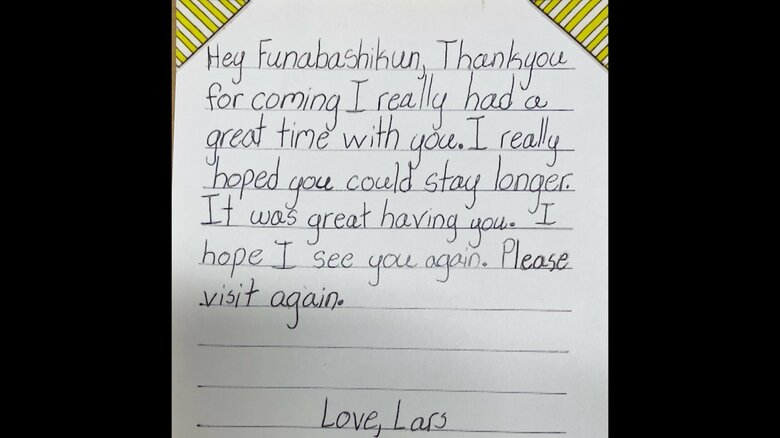 Hey Funabashikun, Thankyou
for coming I really had a
great time with you. I really
hoped you could stay longer.
It was great having you. I
hope I see you again. Please
visit again.
Love, Lars